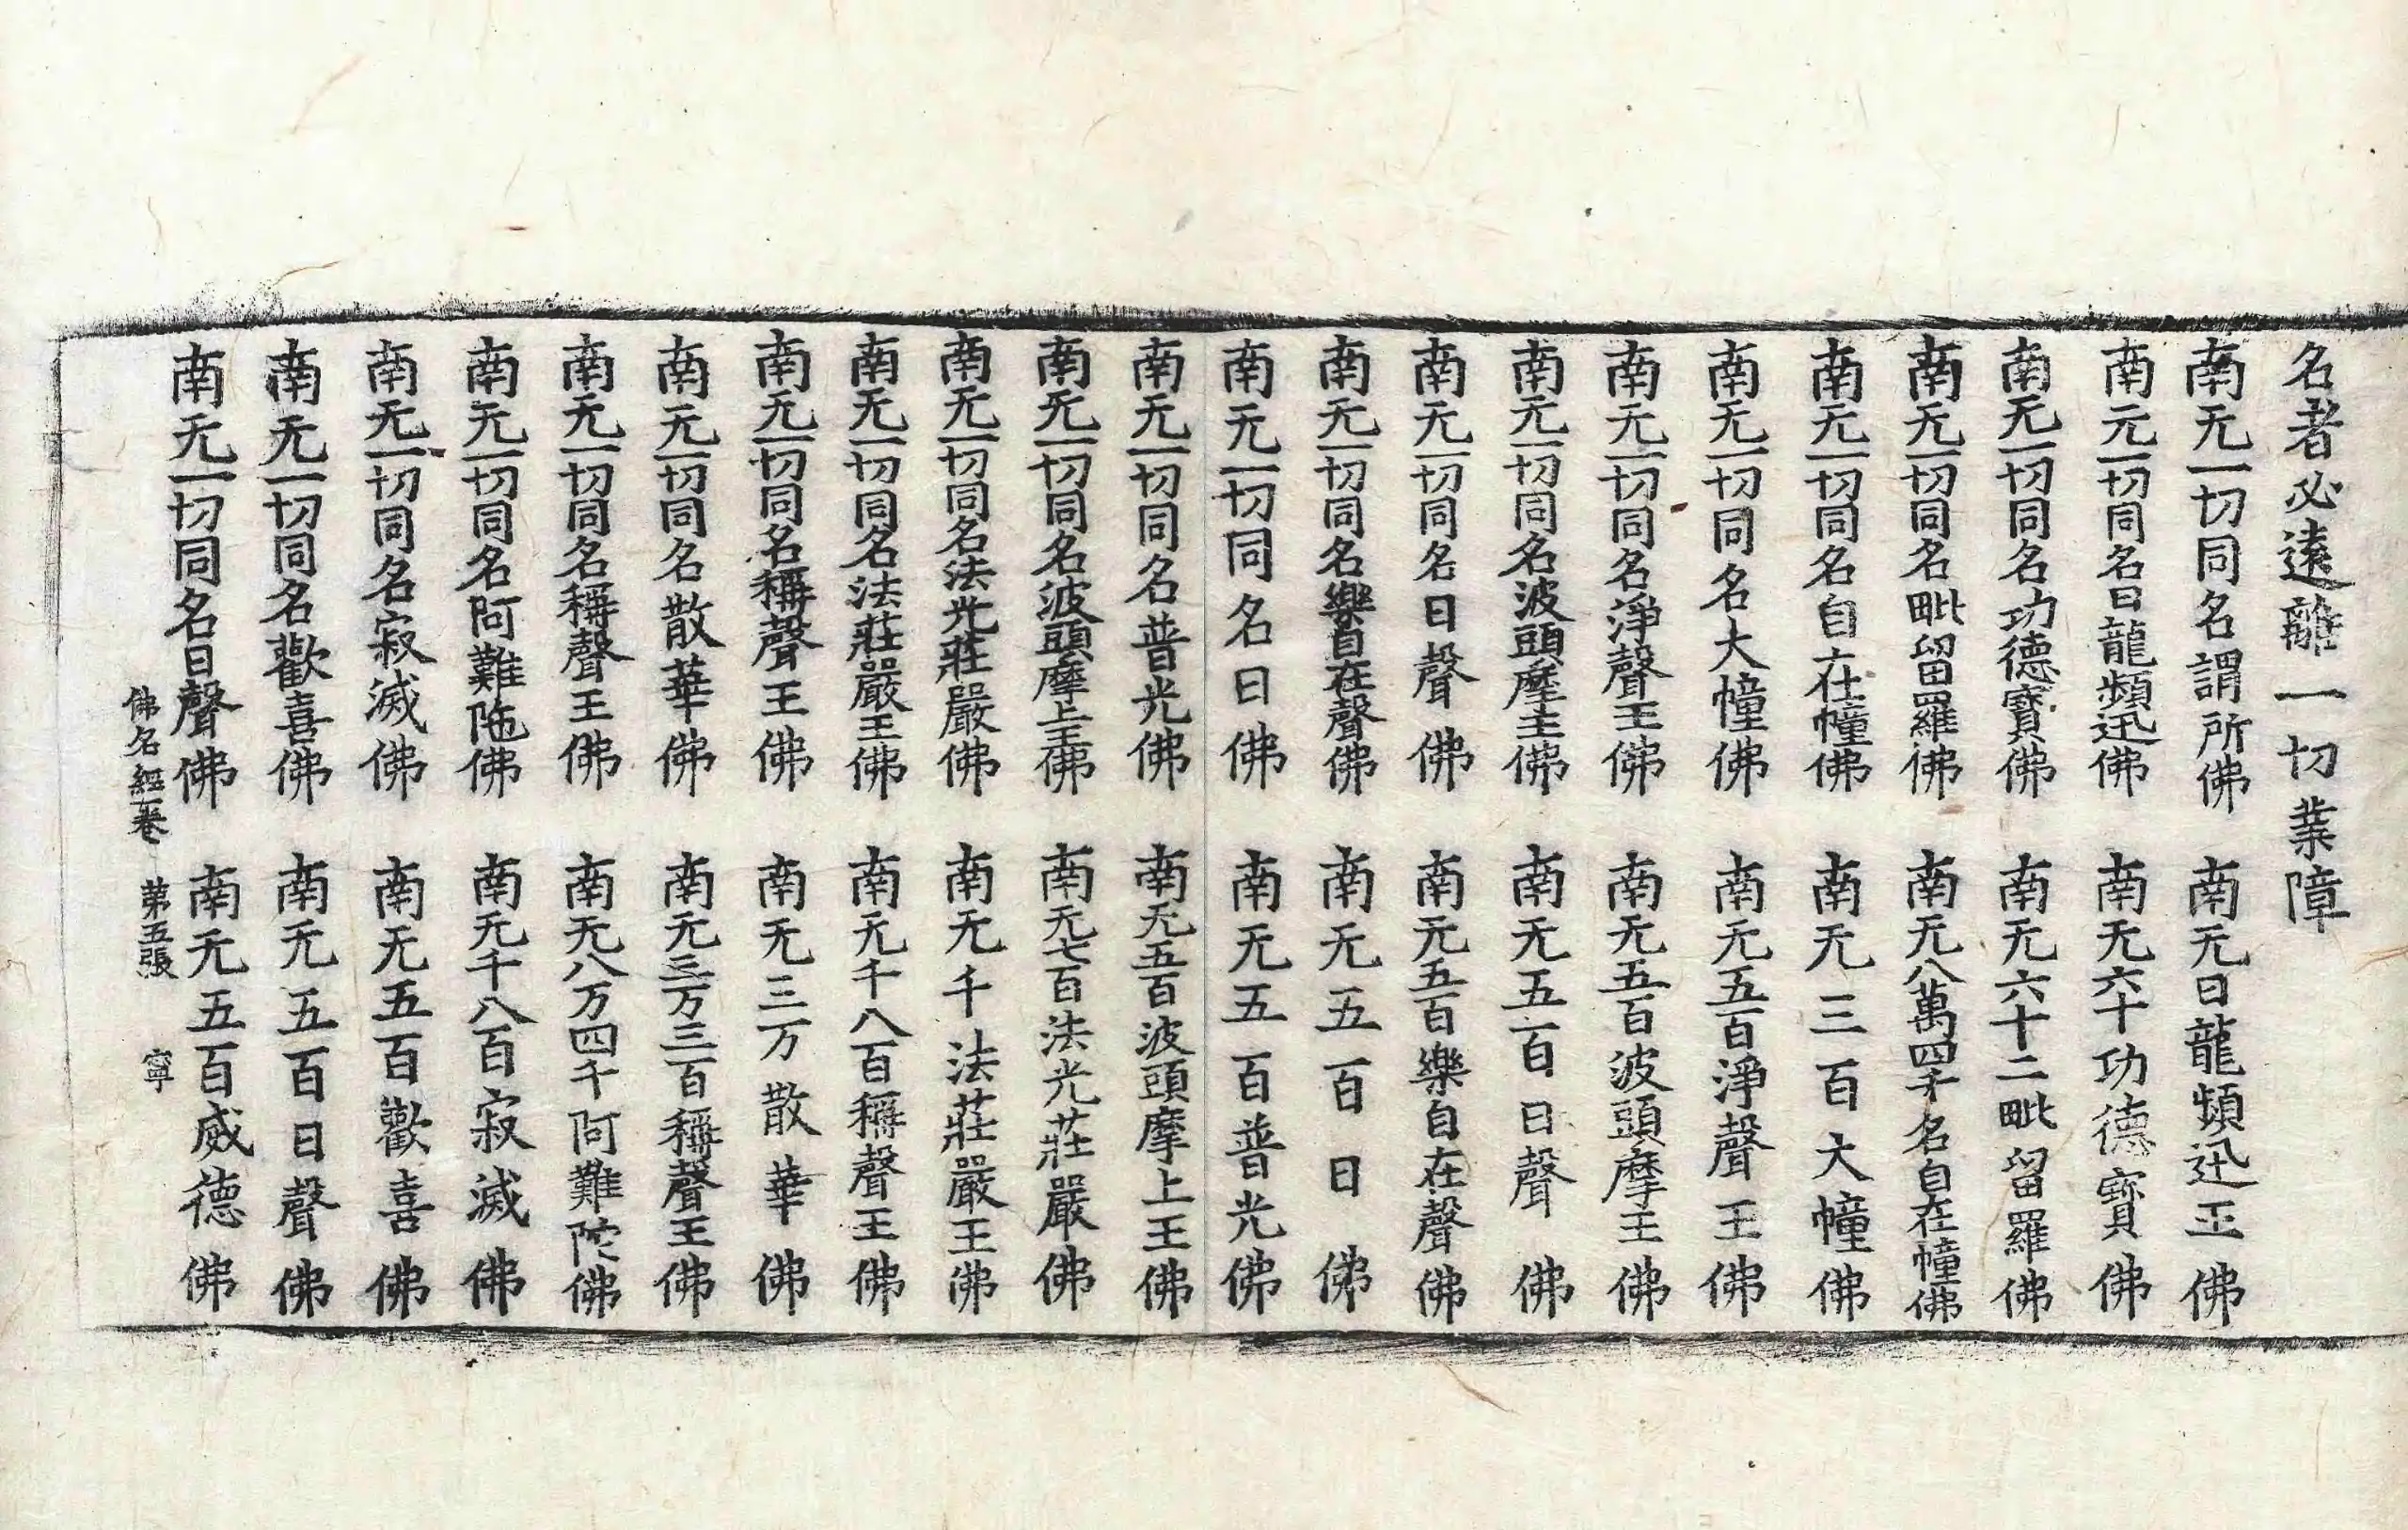 名者必遠離一切業障
南无一切同名謂所佛　南无日龍頻迅王佛
南无一切同名日龍頻迅佛　南无六十功德寶佛
南无一切同名功德寶佛　南无六十二毗留羅佛
南无一切同名毗留羅佛　南无八萬四千名自在幢佛
南无一切同名自在幢佛　南无三百大幢佛
南无一切同名大幢佛　南无五百淨聲王佛
南无一切同名淨聲王佛　南无五百波頭摩王佛
南无一切同名波頭摩王佛　南无五百日聲佛
南无一切同名日聲佛　南无五百樂自在聲佛
南无一切同名樂自在聲佛　南无五百日佛
南无一切同名日佛　南无五百普光佛
南无一切同名普光佛　南无五百波頭摩上王佛
南无一切同名波頭摩上王佛　南无七百法光莊嚴佛
南无一切同名法光莊嚴佛　南无千法莊嚴王佛
南无一切同名法莊嚴王佛　南无千八百稱聲王佛
南无一切同名稱聲王佛　南无三万散華佛
南无一切同名散華佛　南无三万三百稱聲王佛
南无一切同名稱聲王佛　南无八万四千阿難陀佛
南无一切同名阿難陁佛　南无千八百寂滅佛
南无一切同名寂滅佛　南无五百歡喜佛
南无一切同名歡喜佛　南无五百日聲佛
南无一切同名日聲佛　南无五百威德佛
佛名經一卷　第五張　寧